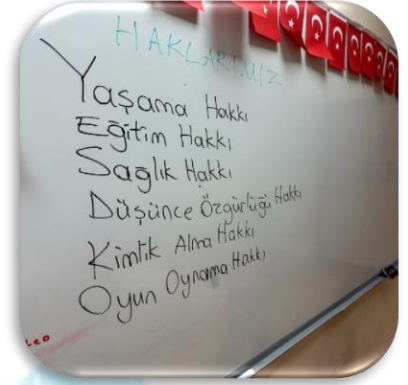 HAKLARIMIZ
Yaşama Hakkı
Eğitim Hakkı
Sağlık Hakkı
Düşünce Özgürlüğü Hakkı
Kimlik Alma Hakkı
Oyun Oynama Hakkı